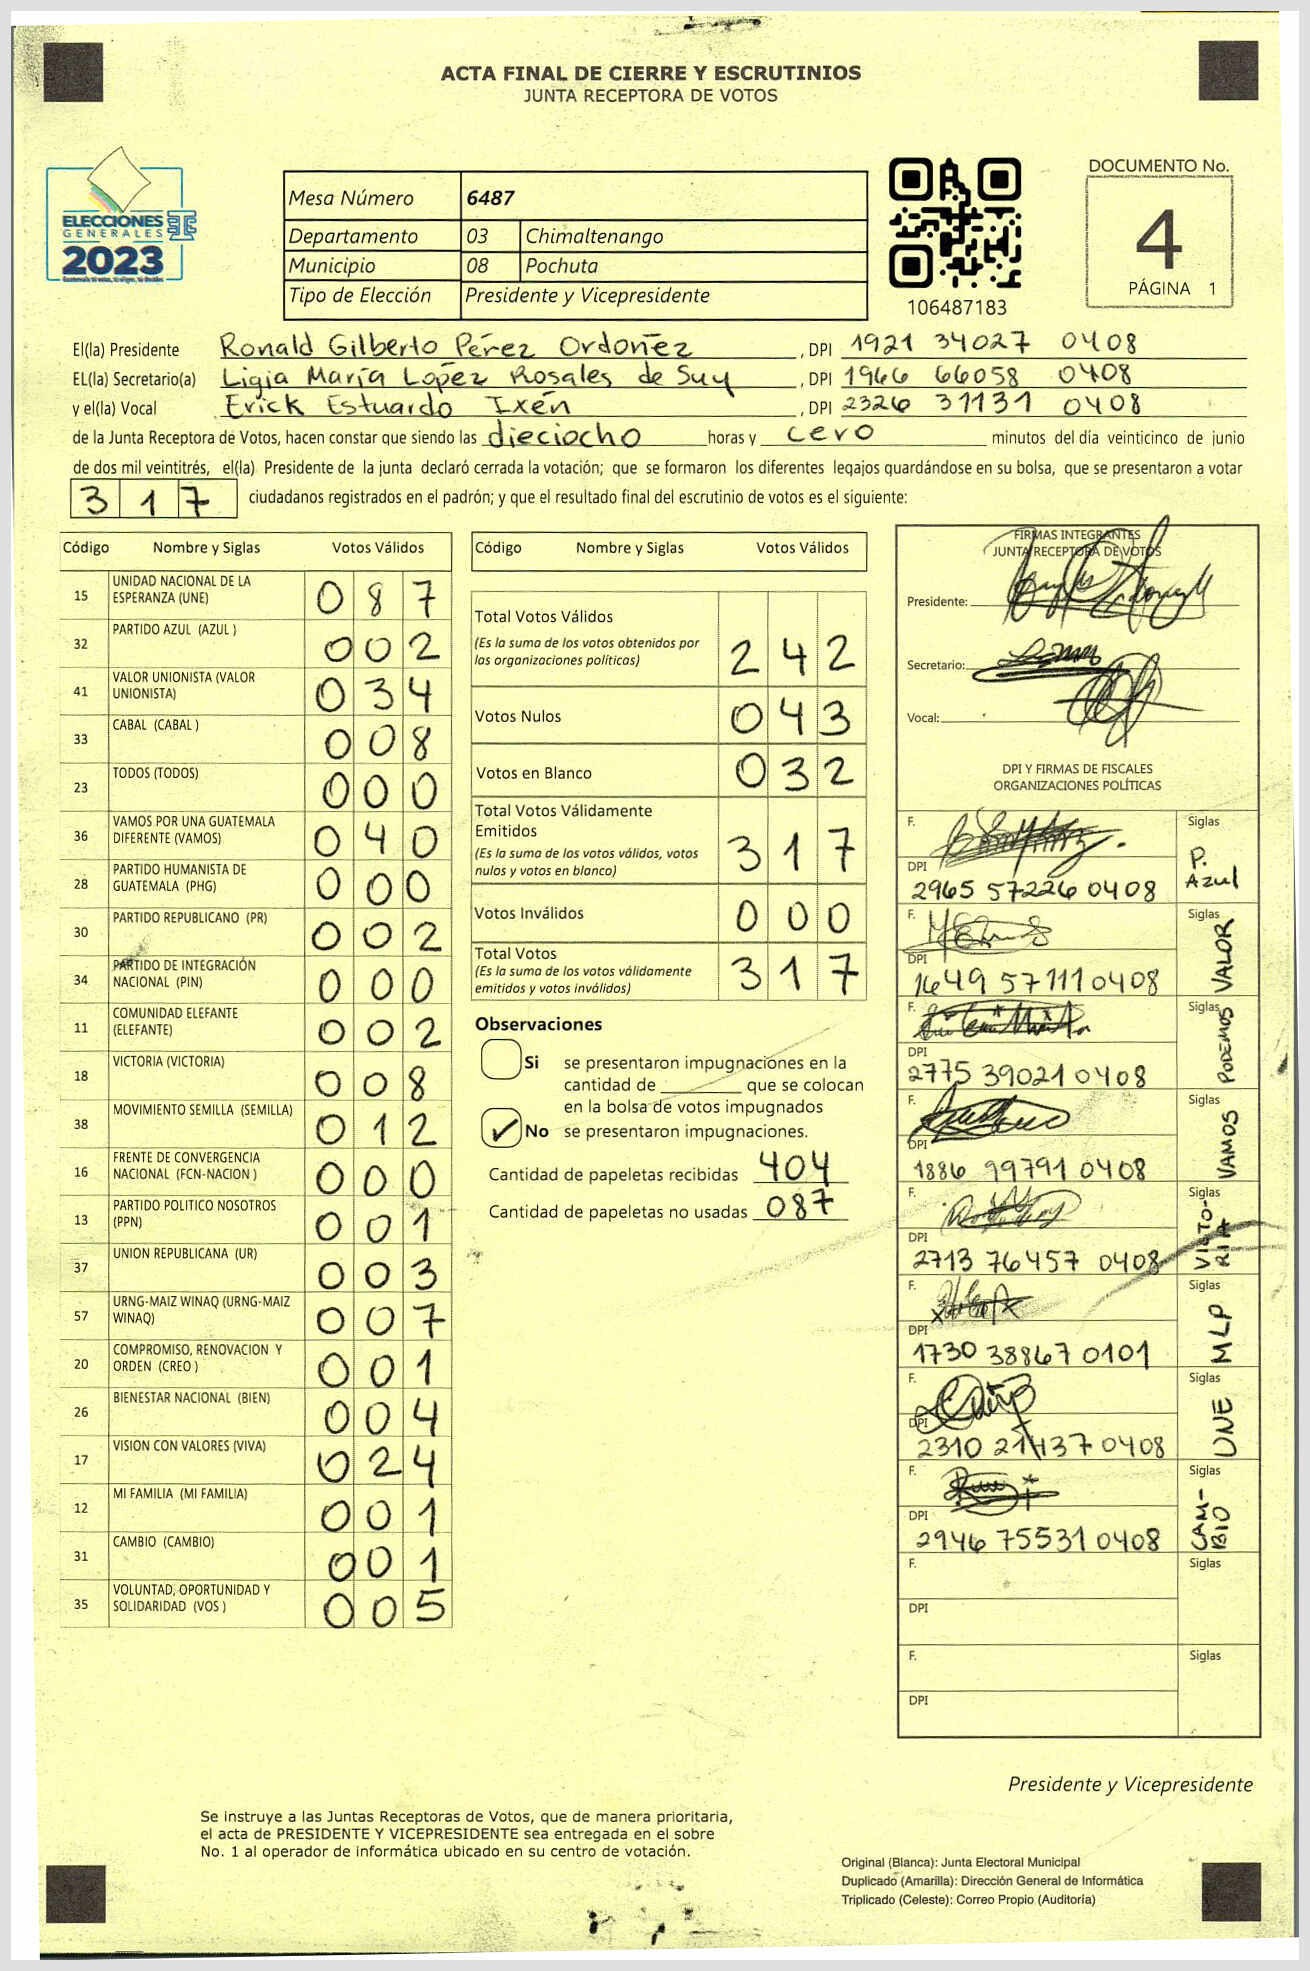 ACTA FINAL DE CIERRE Y ESCRUTINIOS
JUNTA RECEPTORA DE VOTOS
ELECCIONES
GENERALES
2023
Mesa Número 6487
Departamento 03 Chimaltenango
Municipio 08 Pochuta
Tipo de Elección Presidente y Vicepresidente
106487183
DOCUMENTO No.
4
PÁGINA 1
El(la) Presidente Ronald Gilberto Pérez Ordoñez , DPI 1921 34027 0408
EL(la) Secretario(a) Ligia María Lopez Rosales de Suy , DPI 1966 66058 0408
y el(la) Vocal Erick Estuardo Ixén , DPI 2326 31131 0408
de la Junta Receptora de Votos, hacen constar que siendo las dieciocho horas y cero minutos del día veinticinco de junio
de dos mil veintitrés, el(la) Presidente de la junta declaró cerrada la votación; que se formaron los diferentes legajos guardándose en su bolsa, que se presentaron a votar
317 ciudadanos registrados en el padrón; y que el resultado final del escrutinio de votos es el siguiente:
Código Nombre y Siglas Votos Válidos
15 UNIDAD NACIONAL DE LA ESPERANZA (UNE) 087
32 PARTIDO AZUL (AZUL ) 002
41 VALOR UNIONISTA (VALOR UNIONISTA) 034
33 CABAL (CABAL ) 008
23 TODOS (TODOS) 000
36 VAMOS POR UNA GUATEMALA DIFERENTE (VAMOS) 040
28 PARTIDO HUMANISTA DE GUATEMALA (PHG) 000
30 PARTIDO REPUBLICANO (PR) 002
34 PARTIDO DE INTEGRACIÓN NACIONAL (PIN) 000
11 COMUNIDAD ELEFANTE (ELEFANTE) 002
18 VICTORIA (VICTORIA) 008
38 MOVIMIENTO SEMILLA (SEMILLA) 012
16 FRENTE DE CONVERGENCIA NACIONAL (FCN-NACION ) 000
13 PARTIDO POLITICO NOSOTROS (PPN) 001
37 UNION REPUBLICANA (UR) 003
57 URNG-MAIZ WINAQ (URNG-MAIZ WINAQ) 007
20 COMPROMISO, RENOVACION Y ORDEN (CREO ) 001
26 BIENESTAR NACIONAL (BIEN) 004
17 VISION CON VALORES (VIVA) 024
12 MI FAMILIA (MI FAMILIA) 001
31 CAMBIO (CAMBIO) 001
35 VOLUNTAD, OPORTUNIDAD Y SOLIDARIDAD (VOS ) 005
Código Nombre y Siglas Votos Válidos
Total Votos Válidos
(Es la suma de los votos obtenidos por
las organizaciones políticas) 242
Votos Nulos 043
Votos en Blanco 032
Total Votos Válidamente
Emitidos
(Es la suma de los votos válidos, votos
nulos y votos en blanco) 317
Votos Inválidos 000
Total Votos
(Es la suma de los votos válidamente
emitidos y votos inválidos) 317
Observaciones
Si se presentaron impugnaciones en la
cantidad de ________ que se colocan
en la bolsa de votos impugnados
✓ No se presentaron impugnaciones.
Cantidad de papeletas recibidas 404
Cantidad de papeletas no usadas 087
FIRMAS INTEGRANTES
JUNTA RECEPTORA DE VOTOS
Presidente:
Secretario:
Vocal:
DPI Y FIRMAS DE FISCALES
ORGANIZACIONES POLÍTICAS
F. Siglas P. Azul
DPI 2965 57226 0408
F. Siglas VALOR
DPI 1649 57111 0408
F. Siglas PODEMOS
DPI 2775 39021 0408
F. Siglas VAMOS
DPI 1886 99791 0408
F. Siglas VICTO-RIA
DPI 2713 76457 0408
F. Siglas MLP
DPI 1730 38867 0101
F. Siglas UNE
DPI 2310 21437 0408
F. Siglas CAM-BIO
DPI 2946 75531 0408
F. Siglas
DPI
F. Siglas
DPI
Presidente y Vicepresidente
Se instruye a las Juntas Receptoras de Votos, que de manera prioritaria,
el acta de PRESIDENTE Y VICEPRESIDENTE sea entregada en el sobre
No. 1 al operador de informática ubicado en su centro de votación.
Original (Blanca): Junta Electoral Municipal
Duplicado (Amarilla): Dirección General de Informática
Triplicado (Celeste): Correo Propio (Auditoría)